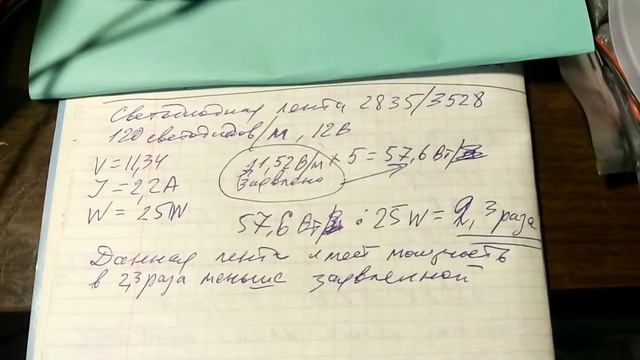 Светодиодная лента 2835/3528
120 светодиодов/м, 12В
V = 11,34
J = 2,2A
W = 25W
11,52В/м × 5 = 57,6 Вт/
Заявлено
57,6 Вт/ : 25W = 2,3 раза
Данная лента имеет мощность
в 2,3 раза меньше заявленной